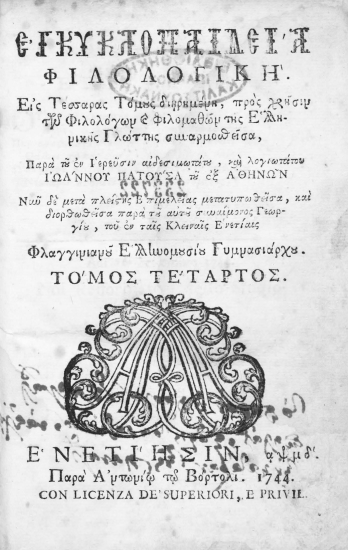 ΕΓΚΥΚΛΟΠΑΙΔΕΙΑ
ΦΙΛΟΛΟΓΙΚΗ.
Εἰς Τέσσαρας Τόμους διῃρημένη, πρὸς χρῆσιν
τῶν Φιλολόγων & Φιλομαθῶν τῆς Ἑλλη-
νικῆς Γλώττης συναρμοθεῖσα,
Παρὰ τοῦ ἐν Ἱερεῦσιν αἰδεσιμωτάτου, καὶ λογιωτάτου
ΙΩΑΝΝΟΥ ΠΑΤΟΥΣΑ τοῦ ἐξ ΑΘΗΝΩΝ
Νῦν δὲ μετὰ πλείστης Ἐπιμελείας μετατυπωθεῖσα, καὶ
διορθωθεῖσα παρὰ τοῦ αὐτοῦ συναίμονος Γεωρ-
γίου, τοῦ ἐν ταῖς Κλειναῖς Ἐνετίαις
Φλαγγινιανοῦ Ἑλληνομουσίου Γυμνασιάρχου.
ΤΟΜΟΣ ΤΕΤΑΡΤΟΣ.
ἘΝΕΤΙΗΣΙΝ, αψμδ'.
Παρὰ Ἀντωνίῳ τῷ Βόρτολι. 1744.
CON LICENZA DE' SUPERIORI, E PRIVIL.